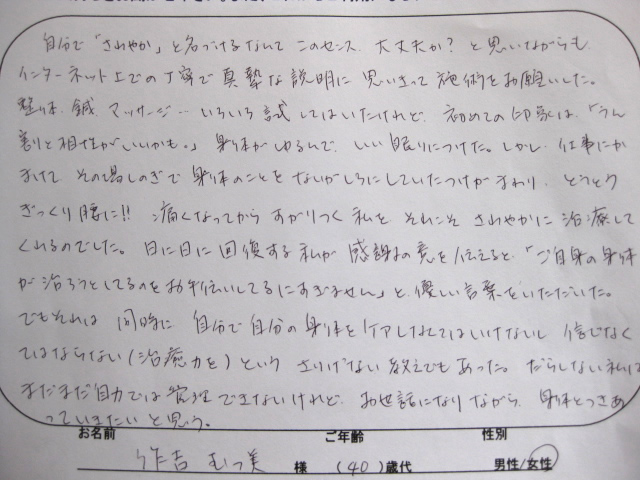 自分で「さわやか」と名づけるなんて このセンス、大丈夫か? と思いながらも、
インターネット上での丁寧で真摯な説明に 思いきって 施術をお願いした。
整体、鍼、マッサージ… いろいろ試してはいたけれど、初めての印象は、「うん
割と相性がいいかも。」身体がゆるんで、いい眠りにつけた。しかし、仕事にか
まけて その場しのぎで 身体のことを ないがしろにしていたつけがまわり、とうとう
ぎっくり腰に!! 痛くなってから すがりつく私を それこそ さわやかに 治療して
くれるのでした。日に日に 回復する私が 感謝の意を伝えると、「ご自身の身体
が治ろうとしてるのを お手伝いしてるにすぎません」と、優しい言葉をいただいた。
でもそれは 同時に 自分で自分の身体をケアしなくてはいけないし 信じなく
てはならない(治癒力を)という さりげない 教えでもあった。だらしない私は
まだまだ自力では 管理できないけれど、お世話になりながら、身体とつきあ
っていきたいと思う。
お名前 ご年齢 性別
むつ美 様 (40)歳代 男性/女性